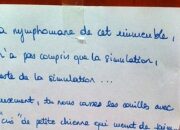 a nymphomane de cet immeuble,
n'a pas compris que la simulation,
este de la simulation ...
usement, tu nous casses les oreilles avec
"cris" de petite chienne qui vient de